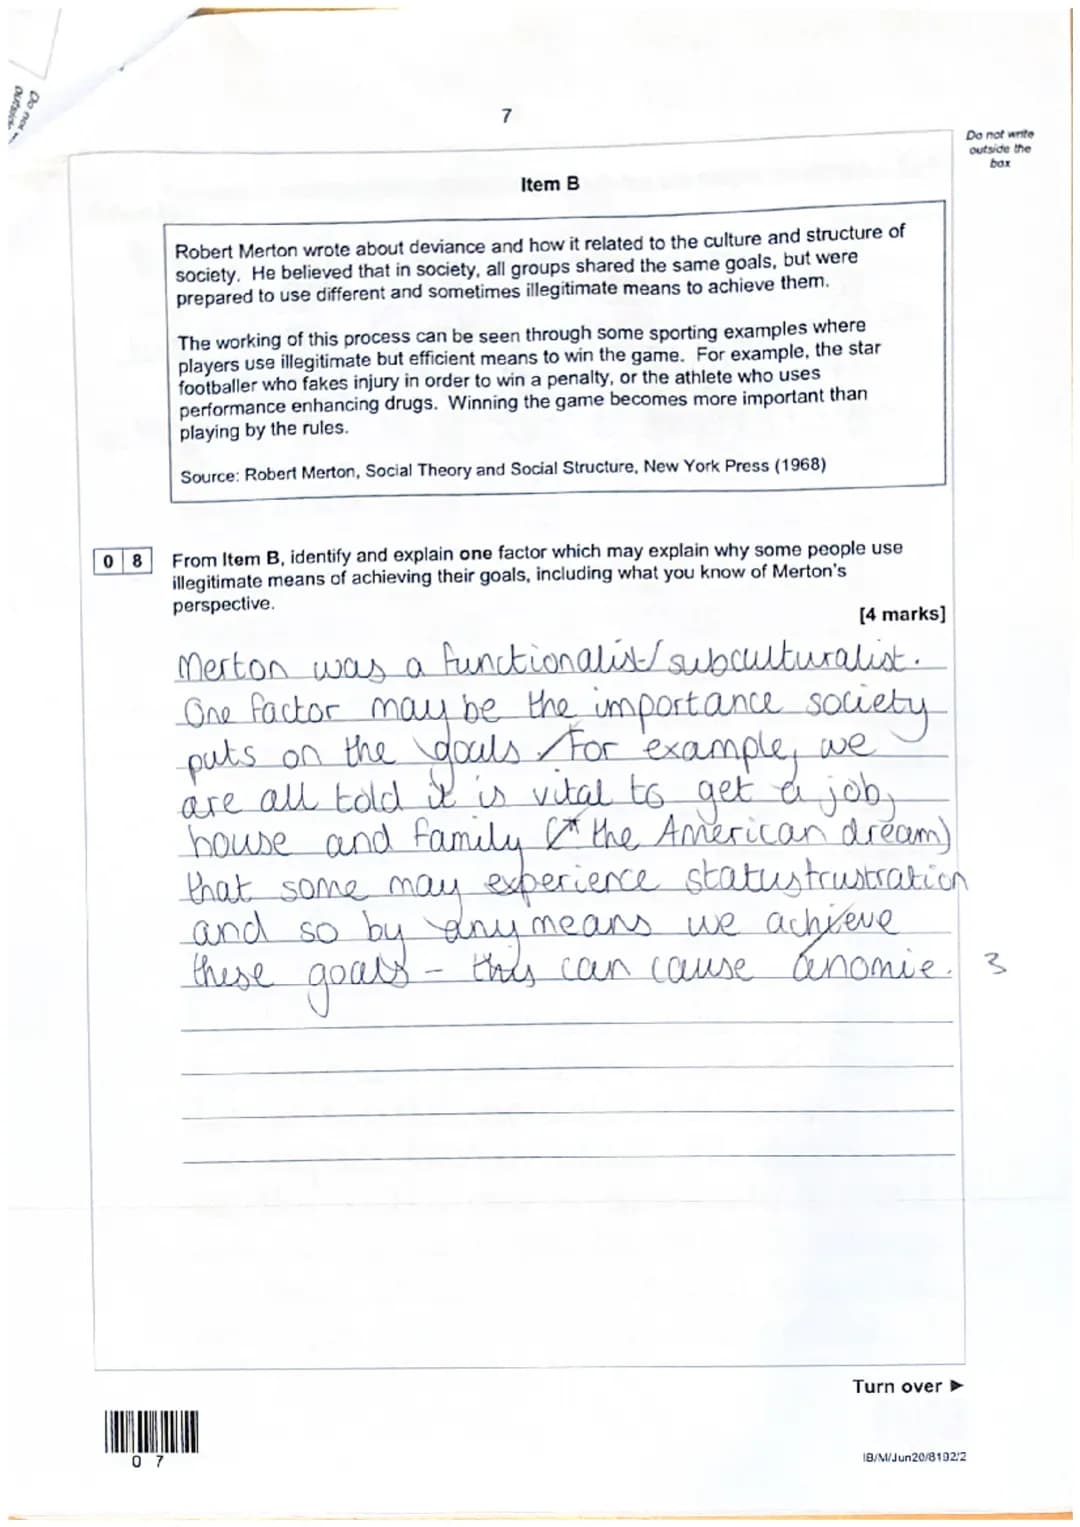 Do not
outside
7
Do not write
outside the
box
Item B
Robert Merton wrote about deviance and how it related to the culture and structure of
society. He believed that in society, all groups shared the same goals, but were
prepared to use different and sometimes illegitimate means to achieve them.
The working of this process can be seen through some sporting examples where
players use illegitimate but efficient means to win the game. For example, the star
footballer who fakes injury in order to win a penalty, or the athlete who uses
performance enhancing drugs. Winning the game becomes more important than
playing by the rules.
Source: Robert Merton, Social Theory and Social Structure, New York Press (1968)
0 8 From Item B, identify and explain one factor which may explain why some people use
illegitimate means of achieving their goals, including what you know of Merton's
perspective.
[4 marks]
Merton was a functionalist/subculturalist.
One factor may be the importance society
puts on the goals. For example, we
are all told it is vital to get a job,
house and family (the American dream)
that some may experience status frustration
and so by any means we achieve
these goals - this can cause anomie. 3
Turn over ►
0 7
IB/M/Jun20/8192/2